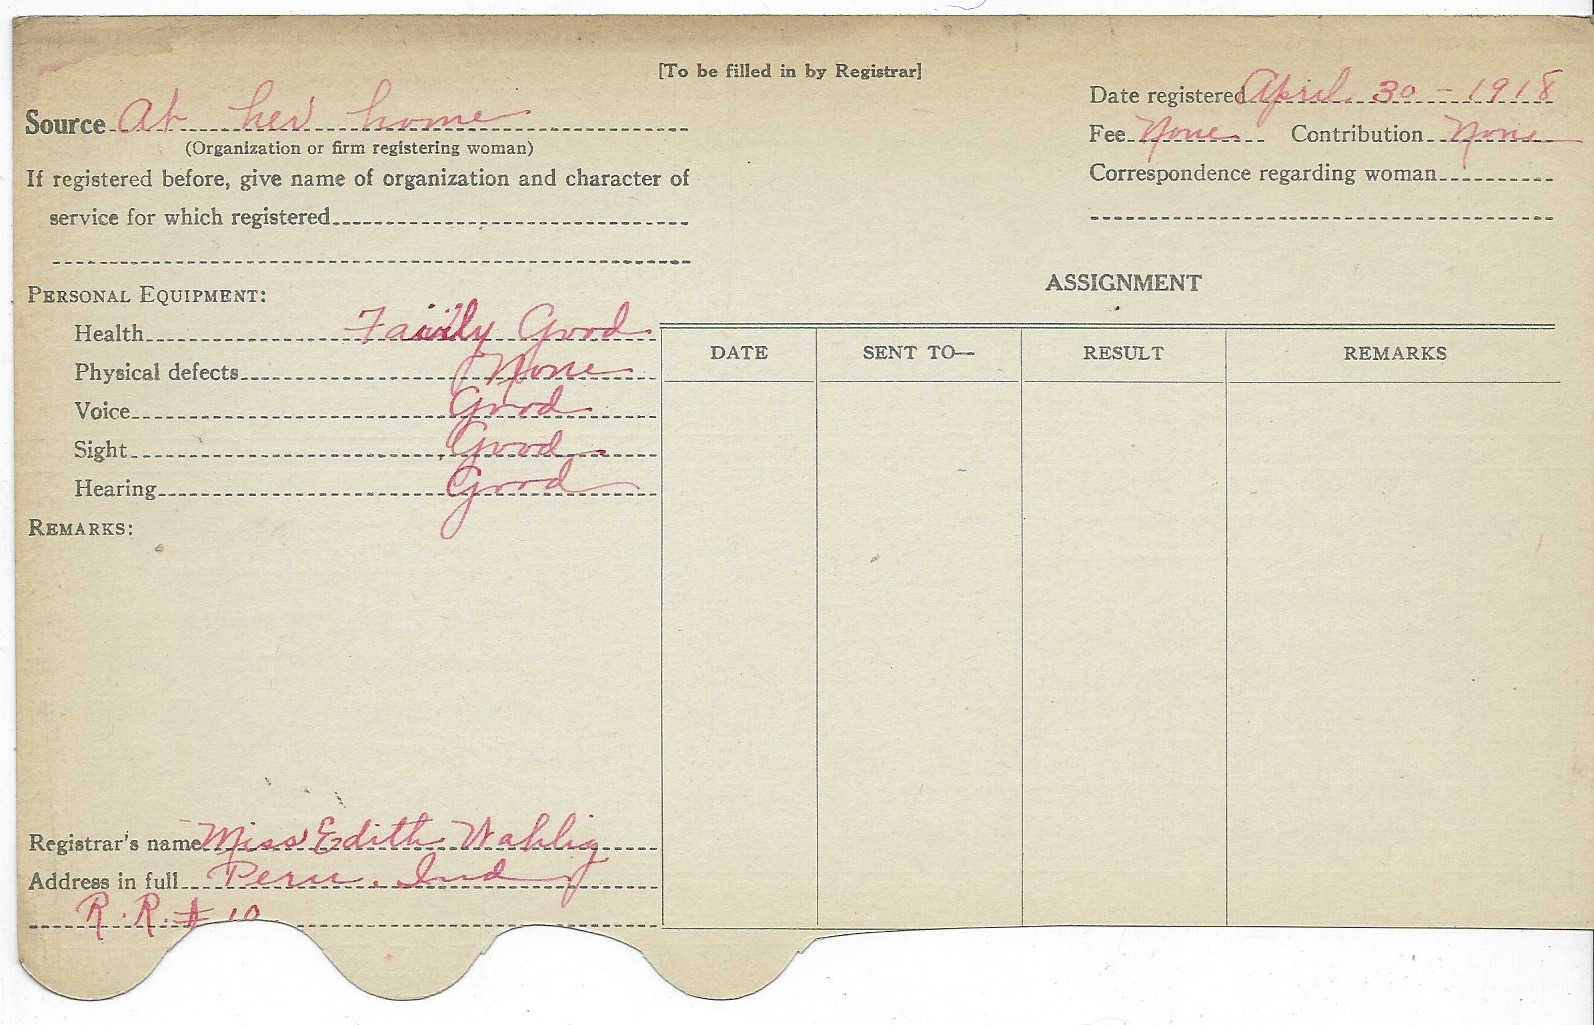 [To be filled in by Registrar]
Source At her home
(Organization or firm registering woman)
If registered before, give name of organization and character of
service for which registered
Date registered April 30 - 1918
Fee None Contribution None
Correspondence regarding woman
PERSONAL EQUIPMENT:
Health Fairly Good
Physical defects None
Voice Good
Sight Good
Hearing Good
REMARKS:
Registrar's name Miss Edith Wahlig
Address in full Peru, Ind
R. R. # 10
ASSIGNMENT
DATE SENT TO— RESULT REMARKS